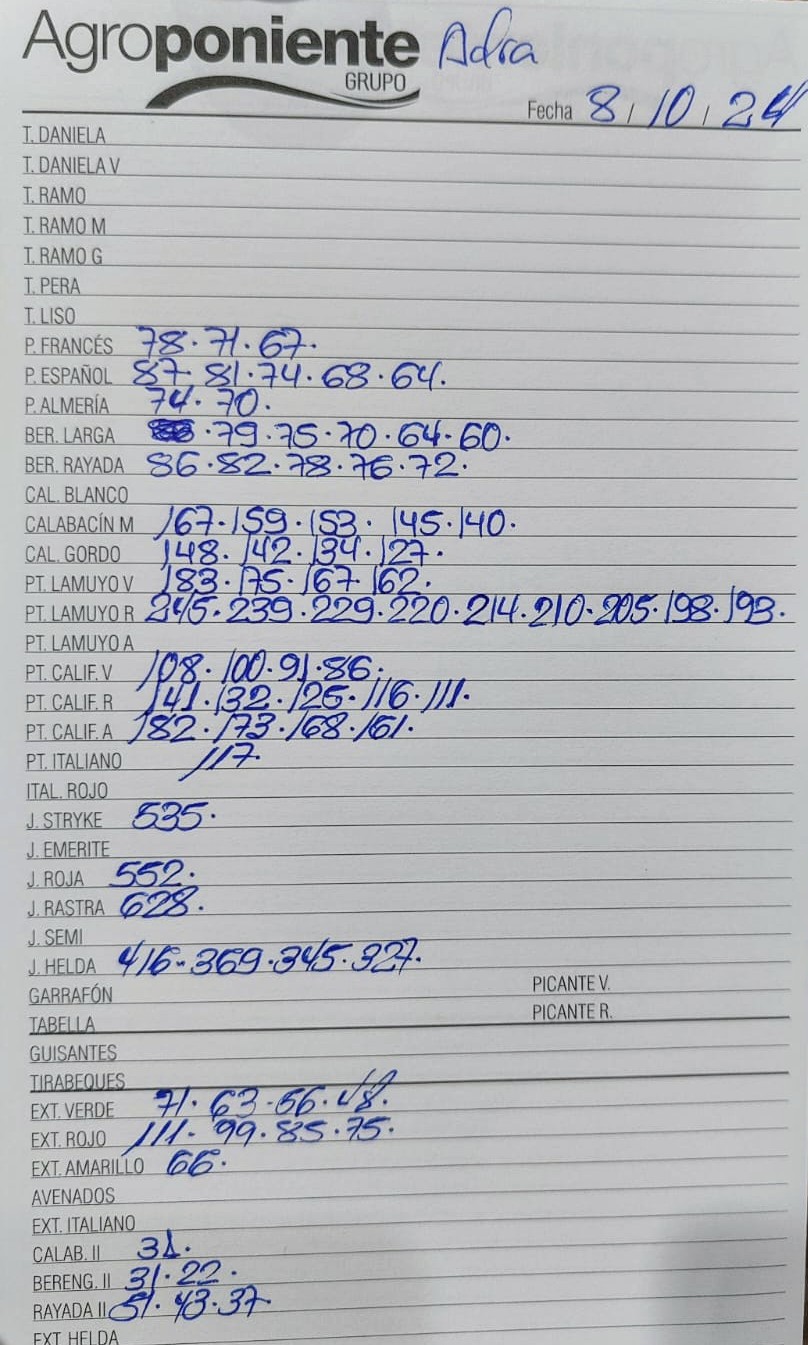 Agroponiente Adra
GRUPO
Fecha 8 / 10 / 24
T. DANIELA
T. DANIELA V
T. RAMO
T. RAMO M
T. RAMO G
T. PERA
T. LISO
P. FRANCÉS 78. 71. 67.
P. ESPAÑOL 87. 81. 74. 68. 64.
P. ALMERÍA 74. 70.
BER. LARGA . 79. 75. 70. 64. 60.
BER. RAYADA 86. 82. 78. 76. 72.
CAL. BLANCO
CALABACÍN M 167. 159. 153. 145. 140.
CAL. GORDO 148. 142. 134. 127.
PT. LAMUYO V 183. 175. 167. 162.
PT. LAMUYO R 245. 239. 229. 220. 214. 210. 205. 198. 193.
PT. LAMUYO A
PT. CALIF. V 108. 100. 91. 86.
PT. CALIF. R 141. 132. 125. 116. 111.
PT. CALIF. A 182. 173. 168. 161.
PT. ITALIANO 117.
ITAL. ROJO
J. STRYKE 535.
J. EMERITE
J. ROJA 552.
J. RASTRA 628.
J. SEMI
J. HELDA 416. 369. 345. 327.
GARRAFÓN PICANTE V.
TABELLA PICANTE R.
GUISANTES
TIRABEQUES
EXT. VERDE 71. 63. 56. 48.
EXT. ROJO 111. 99. 85. 75.
EXT. AMARILLO 66.
AVENADOS
EXT. ITALIANO
CALAB. II 31.
BERENG. II 31. 22.
RAYADA II 51. 43. 37.
EXT. HELDA